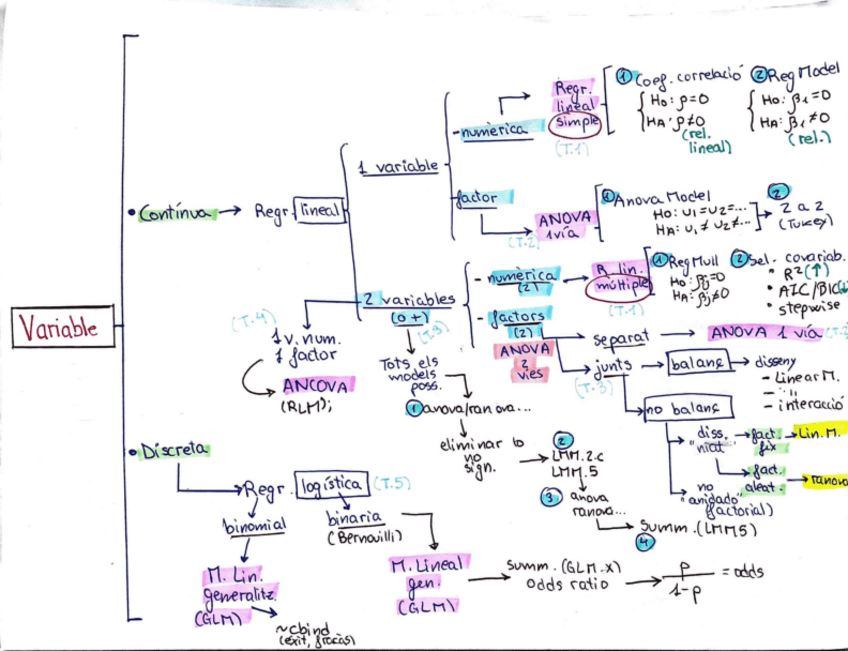 Variable
• Contínua → Regr. lineal
1 variable
- numèrica
Regr.
lineal
simple
(T.1)
① Coef. correlació
H0: ρ=0
HA: ρ≠0
(rel.
lineal)
② Reg Model
H0: β1=0
HA: β1≠0
(rel.)
factor
ANOVA
1 vía
(T.2)
① Anova Model
H0: u1=u2=...
HA: u1≠u2≠...
②
2 a 2
(Tukey)
2 variables
(o +)
(T.3)
- numèrica
(2)
R. lin.
múltiple
(T.1)
① Reg Mull
H0: βj=0
HA: βj≠0
② Sel. covariab.
• R2(↑)
• AIC/BIC(↓)
• stepwise
- factors
(2)
ANOVA
2
vies
separat → ANOVA 1 vía
junts → balanç → disseny
(T.3)
- Linear M.
- interacció
no balanç
diss.
"niat"
fact.
fix
Lin. M.
fact.
aleat.
ranova
no
"anidado"
(factorial)
(T.4)
1 v. num.
1 factor
ANCOVA
(RLM);
Tots els
models
poss.
① anova/ranova...
eliminar lo
no
sign.
②
LMM.2.c
LMM.5
③ anova
ranova...
Summ. (LMM5)
④
• Discreta
Regr. logística (T.5)
binomial
M. Lin.
generalitz.
(GLM)
~cbind
(èxit, fracàs)
binaria
(Bernouilli)
M. Lineal
gen.
(GLM)
Summ. (GLM.x)
odds ratio
p
1-p
= odds